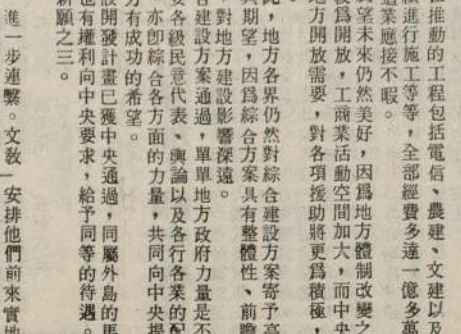 在推動的工程包括電信、農建、文建以及
續進行施工等等，全部經費多達一億多萬
造業應接不暇。
展望未來仍然美好，因爲地方體制改變之
較爲開放，工商業活動空間加大，而中央
地方開放需要，對各項援助將更爲積極，
。
此，地方各界仍然對綜合建設方案寄予高
與期望，因爲綜合方案具有整體性、前瞻
對地方建設影響深遠。
合建設方案通過，單單地方政府力量是不
要各級民意代表、輿論以及各行各業的配
亦卽綜合各方面的力量，共同向中央提
方有成功的希望。
設開發計畫已獲中央通過，同屬外島的馬
也有權利向中央要求，給予同等的待遇。
新願之三。
進一步連繫。文敎
安排他們前來實地